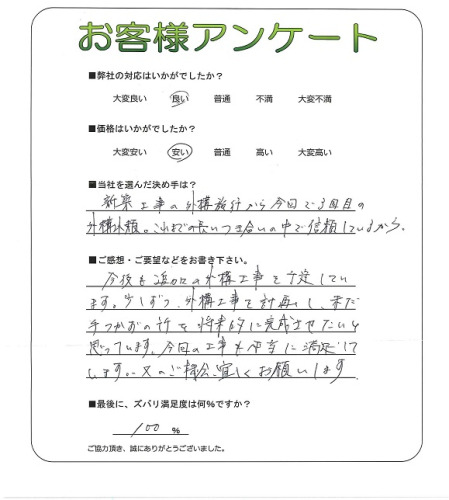 お客様アンケート
■弊社の対応はいかがでしたか？
大変良い 良い 普通 不満 大変不満
■価格はいかがでしたか？
大変安い 安い 普通 高い 大変高い
■当社を選んだ決め手は？
新築工事の外構施行から今回で3回目の
外構依頼。これまでの長いつき合いの中で信頼しているから。
■ご感想・ご要望などをお書き下さい。
今後も追加の外構工事を予定してい
ます。少しずつ、外構工事を計画し、未だ
手つかずの所を将来的に完成させたいと
思っています。今回の工事も非常に満足して
います。又のご機会、宜しくお願いします
■最後に、ズバリ満足度は何%ですか？
100 %
ご協力頂き、誠にありがとうございました。